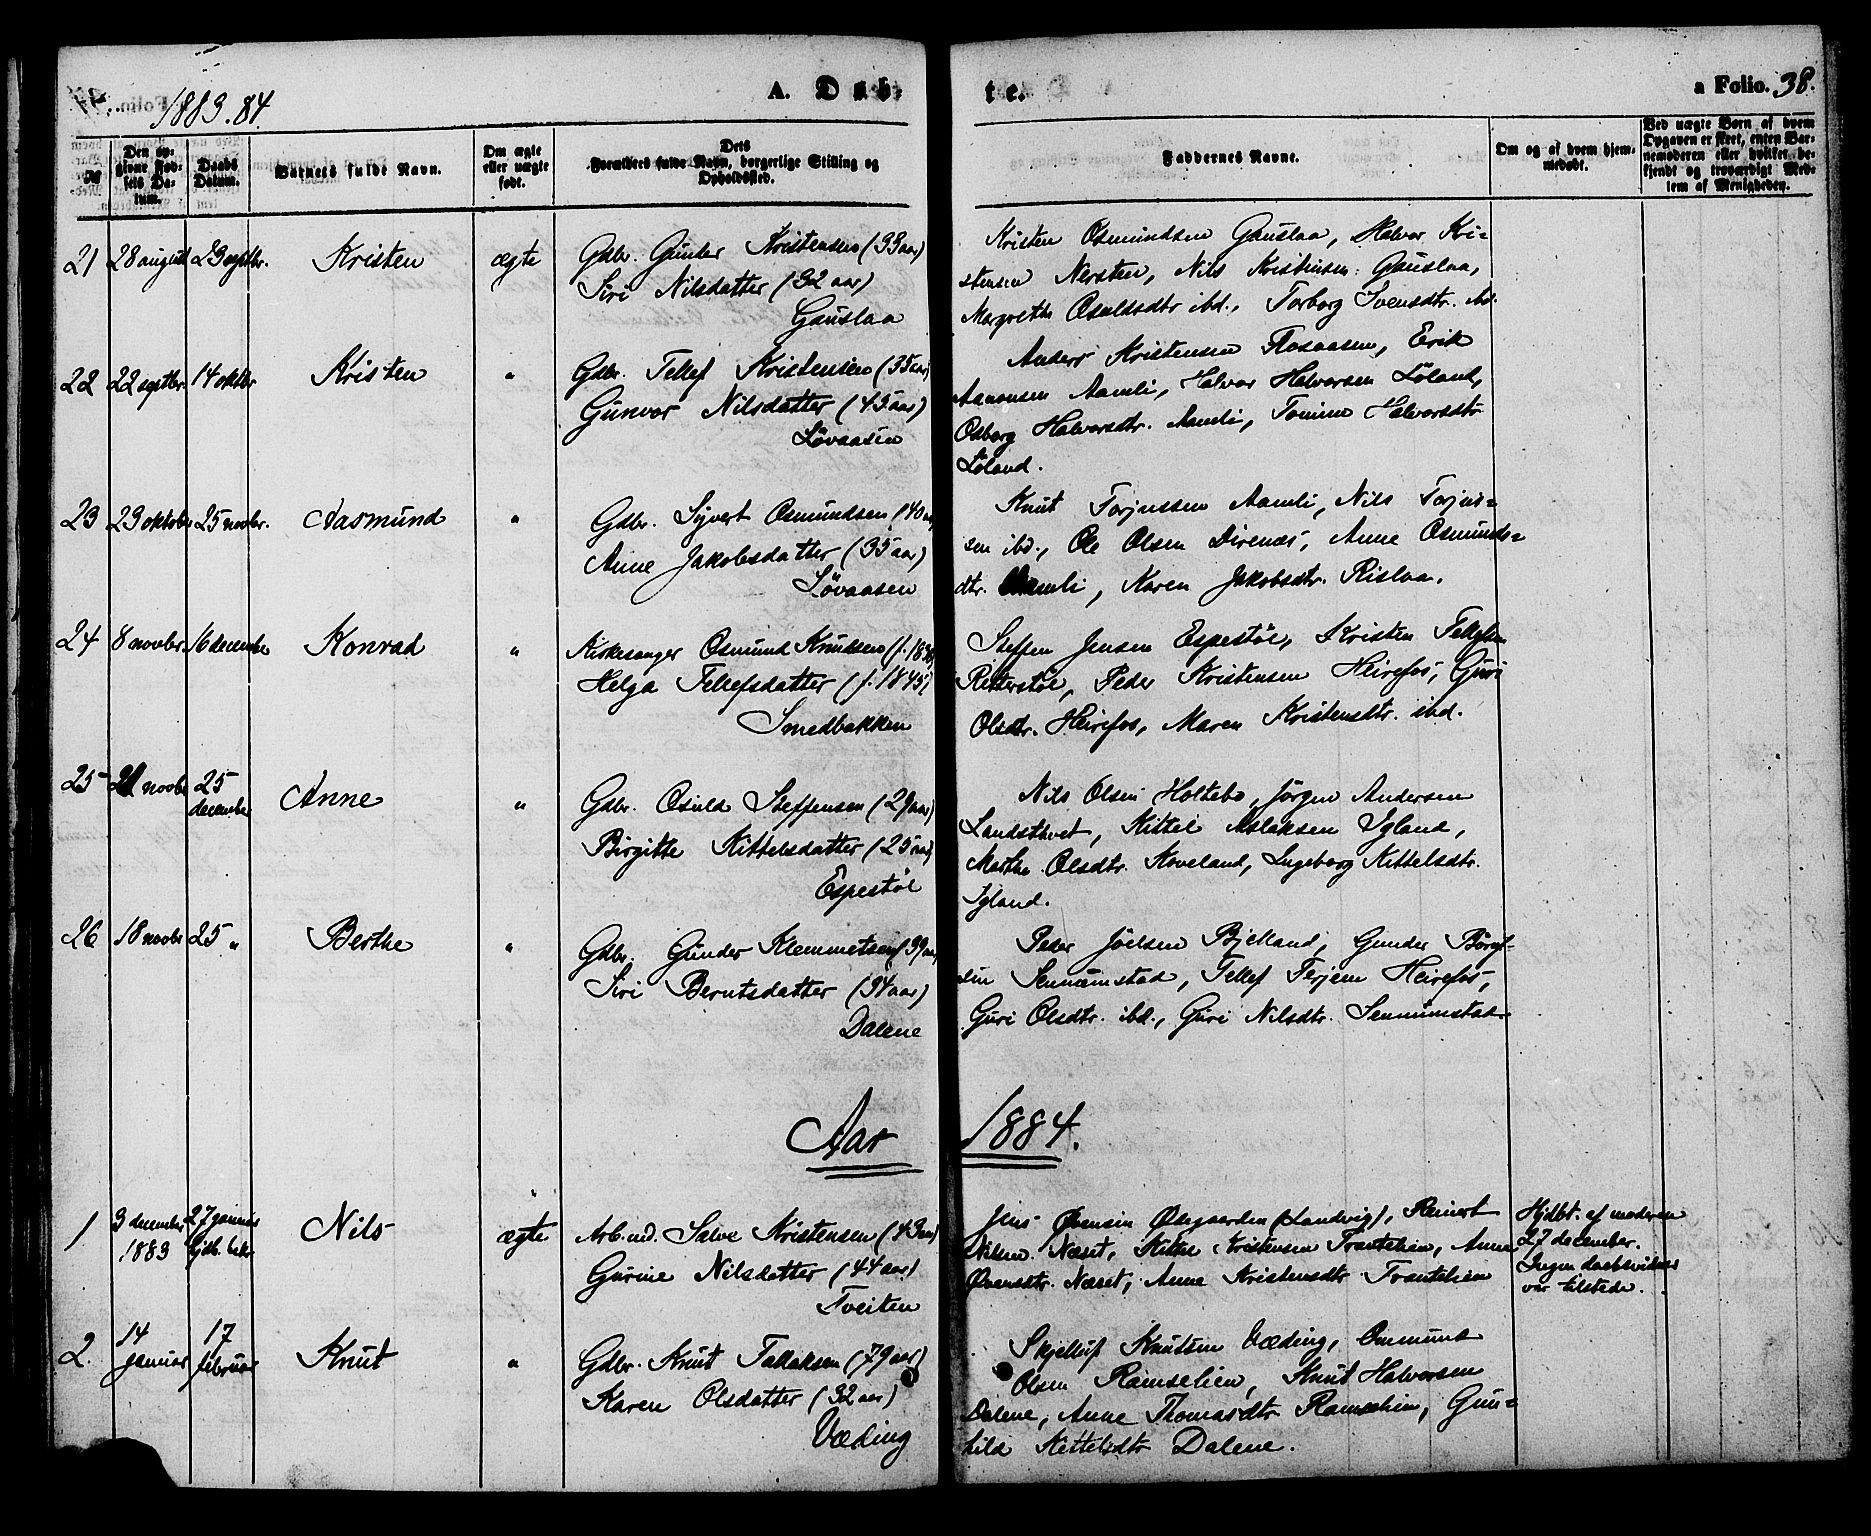 1883.84.
A. Døb-
te.
a Folio. 38.
№
Den op-
givne Fød-
sels Da-
tum.
Daabs
Datum.
Barnets fulde Navn.
Om ægte
eller uægte
født.
Dets
Forældres fulde Navn, borgerlige Stilling og
Opholdssted.
Faddernes Navne.
Om og af hvem hjem-
medøbt.
Ved uægte Børn af hvem
Opgaven er skeet, enten Bar-
nemoderen eller hvilket be-
kjendt og troværdigt Med-
lem af Menigheden.
21 28 august 23 septbr. Kristen ægte Gdbr. Gunder Kristensen (33 aar)
Siri Nilsdatter (32 aar)
Gauslaa
Kristen Osmundsen Gauslaa, Halvor Kri-
stensen Nersten, Nils Kristensen Gauslaa,
Margrethe Osuldsdtr ibd., Torborg Svensdtr. ibd.
22 22 septbr. 14 oktbr Kristen " Gdbr. Tellef Kristensen (35 aar)
Gunvor Nilsdatter (43 aar)
Løvaasen
Anders Kristensen Flosaasen, Erik
Aanonsen Aamli, Halvor Halvorsen Löland,
Osborg Halvorsdtr. Aamli, Tomine Halvorsdtr
Löland.
23 23 oktobr 25 novbr. Aasmund " Gdbr. Syvert Osmundsen (40 aar)
Anne Jakobsdatter (35 aar)
Løvaasen
Knut Torjussen Aamli, Nils Torjus-
sen ibd., Ole Olsen Direnæs, Anne Osmunds-
dtr. Aamli, Karen Jakobsdtr. Rislaa.
24 8 novbr. 16 decembr Konrad " Kirkesanger Osmund Knutsen (f. 1836)
Helga Tellefsdatter (f. 1845)
Smedbakken
Steffen Jensen Espestöl, Kristen Tellefsen
Retterstöl, Peder Kristensen Heirefos, Guri
Olsdtr. Heirefos, Maren Kristensdtr. ibd.
25 21 novbr 25
decembr Anne " Gdbr. Osuld Steffensen (29 aar)
Birgitte Kittelsdatter (25 aar)
Espestöl
Nils Olsen Holtebo, Jörgen Andersen
Landsthvet, Kittel Aslaksen Igland,
Marthe Olsdtr. Koveland, Ingeborg Kittelsdtr.
Igland.
26 18 novbr 25 " Berthe " Gdbr. Gunder Klemmetsen (39 aar)
Siri Berntsdatter (34 aar)
Dalene
Peder Jöelsen Bjelland, Gunder Börgt-
sen Sennumstad, Tellef Terjesen Heirefos,
Guri Olsdtr. ibd., Guri Nilsdtr. Sennumstad.
Aar 1884.
1 3 december
1883 27 januar
hjdb. bekr. Nils ægte Arb.md. Salve Kristensen (43 aar)
Gurine Nilsdatter (44 aar)
Tveiten
Jens Övensen Ödegaarden (Landvig), Reinert
Nilsen Næset, Kittel Kristensen Trantelien, Anne
Övensdtr. Næset, Anne Kristensdtr Trantelien
Hjdbt. af moderen
27 december.
Ingen daabsvidner
var tilstede.
2. 14
januar 17
februar Knut " Gdbr. Knut Tallaksen (79 aar)
Karen Olsdatter (32 aar)
Væding
Skjelluf Knutsen Væding, Ommund
Olsen Ramselien, Knut Halvorsen
Dalene, Anne Thomasdtr Ramselien, Gun-
hild Kettelsdtr Dalene.